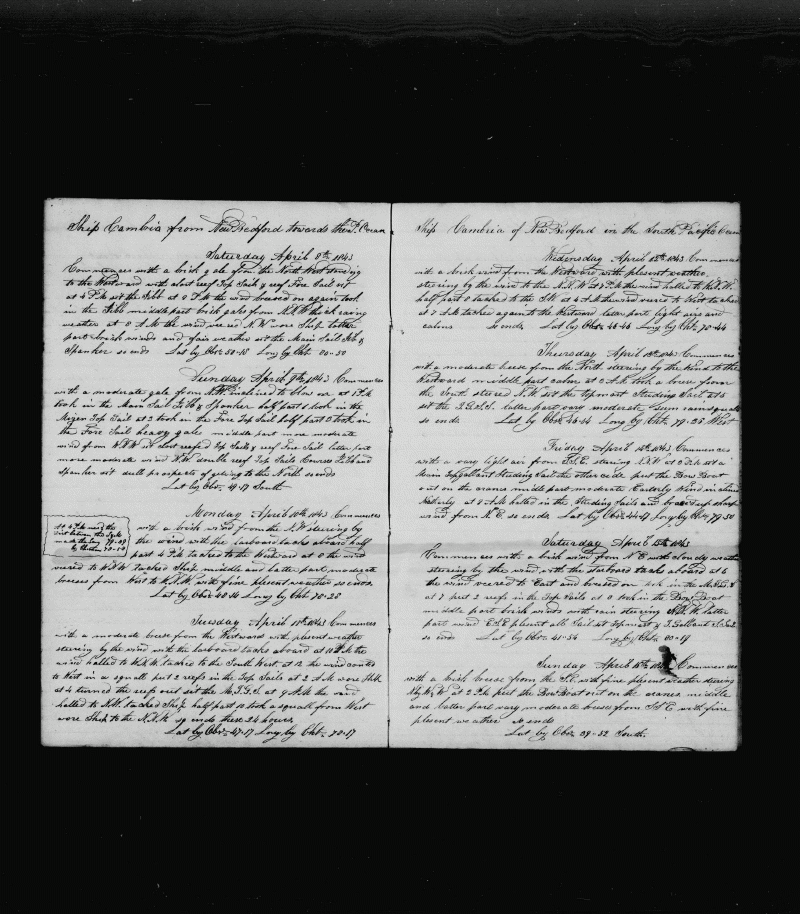 Ship Cambria from New Bedford towards the P. Ocean
Saturday April 8th 1843
Commences with a brisk gale from the North West standing
to the Westward with close reef Top Sails & reef Fore Sail set
at 4 P.M. set the Jibb at 8 P.M. the wind breased on again took
in the Jibb middle part brisk gales from N.N.W. thick rainy
weather at 8 A.M. the wind veered N.W. wore Ship latter
part brisk winds and fair weather set the Main Sail Jib &
Spanker so ends Lat by Obs 50-18 Long by Cht
Sunday April 9th 1843 Commences
with a moderate gale from N.W. inclined to blow
took in the Main Sail Jibb & Spanker half past 1 took in the
Mizen Top Sail at 2 took in the Fore Top Sail half past took in
the Fore Sail heavy gale middle part more moderate
wind from W.N.W. set close reefed Top Sails & reef Fore Sail latter part
more moderate wind N.W. double reef Top Sails Courses Jibb and
Spanker set dull prospects of geting to the North so ends
Lat by Obs 49-17 South
Monday April 10th 1843 Commences
with a brisk wind from the N.W. steering by
the wind with the larboard tacks aboard half
past 4 P.M. tacked to the Westward at 8 the wind
veered to W.N.W. tacked Ship middle and latter part moderate
breeses from West to W.N.W. with fine plesent weather so ends
Lat by Obs Long by Cht 78-28
Tuesday April 11th 1843 Commences
with a moderate breese from the Westward with plesent weather
steering by the wind with the larboard tacks aboard at 10 P.M. the
wind halled to W.N.W. tacked to the South West at 12 the wind
to West in a squall put 2 reefs in the Top Sails at 2 A.M. wore Ship
at 4 turned the reefs out set the M.T.G.S. at 9 A.M. the wind
halled to N.W. tacked Ship half past 10 took a squall from West
wore Ship to the N.N.W. so ends these 24 hours
Lat by Obs 47-17 Long by Cht 78-17
Ship Cambria of New Bedford in the South Pacific Ocean
Wednesday April 12th 1843 Commences
with a brisk wind from the Westward with plesent weather
steering by the wind to the N.N.W. at 7 P.M. the wind halled to W.N.W.
half past 8 tacked to the S.W. at 4 A.M. the wind veered to West tacked
at 8 A.M. tacked again to the Westward latter part light airs and
calms so ends Lat by Obs Long by Cht 78-44
Thursday April 13th 1843 Commences
with a moderate breese from the North steering by the wind to the
Westward middle part calm at 2 A.M. took a breese from
the South steered N.W. set the Topmast Studing Sail at 5
set the T.G.S.S. latter part vary moderate
so ends Lat by Obs Long by Cht 79-25 West
Friday April 14th 1843 Commences
with a vary light air from S.S.E. steering N.N.W. at 2 P.M. set a
Main Topgallant Studing Sail the other side put the Bow Boat
out on the cranes middle part moderate Easterly wind inclined
Northerly at 8 A.M. halled in the Studing Sails and braced up sharp
wind from N.E. so ends Lat by Obs 44-07 Long by Cht 79-50
Saturday April 15th 1843
Commences with a brisk wind from N.E. with cloudy weather
steering by the wind with the starboard tacks aboard at 4
the wind veered to East and breesed on took in the
at 7 put 2 reefs in the Top Sails at 8 took in the Bow Boat
middle part brisk winds with rain steering N.N.W. latter
part wind E.S.E. plesent all Sail set Topmast & T. Gallant
so ends Lat by Obs 41-54 Long by Cht 80-19
Sunday April 16th 1843 Commences
with a brisk breese from the S.E. with fine plesent weather steering
N by W at 2 P.M. put the Bow Boat out on the cranes middle
and latter part vary moderate breese from S S E with fine
plesent weather so ends
Lat by Obs 39-52 South